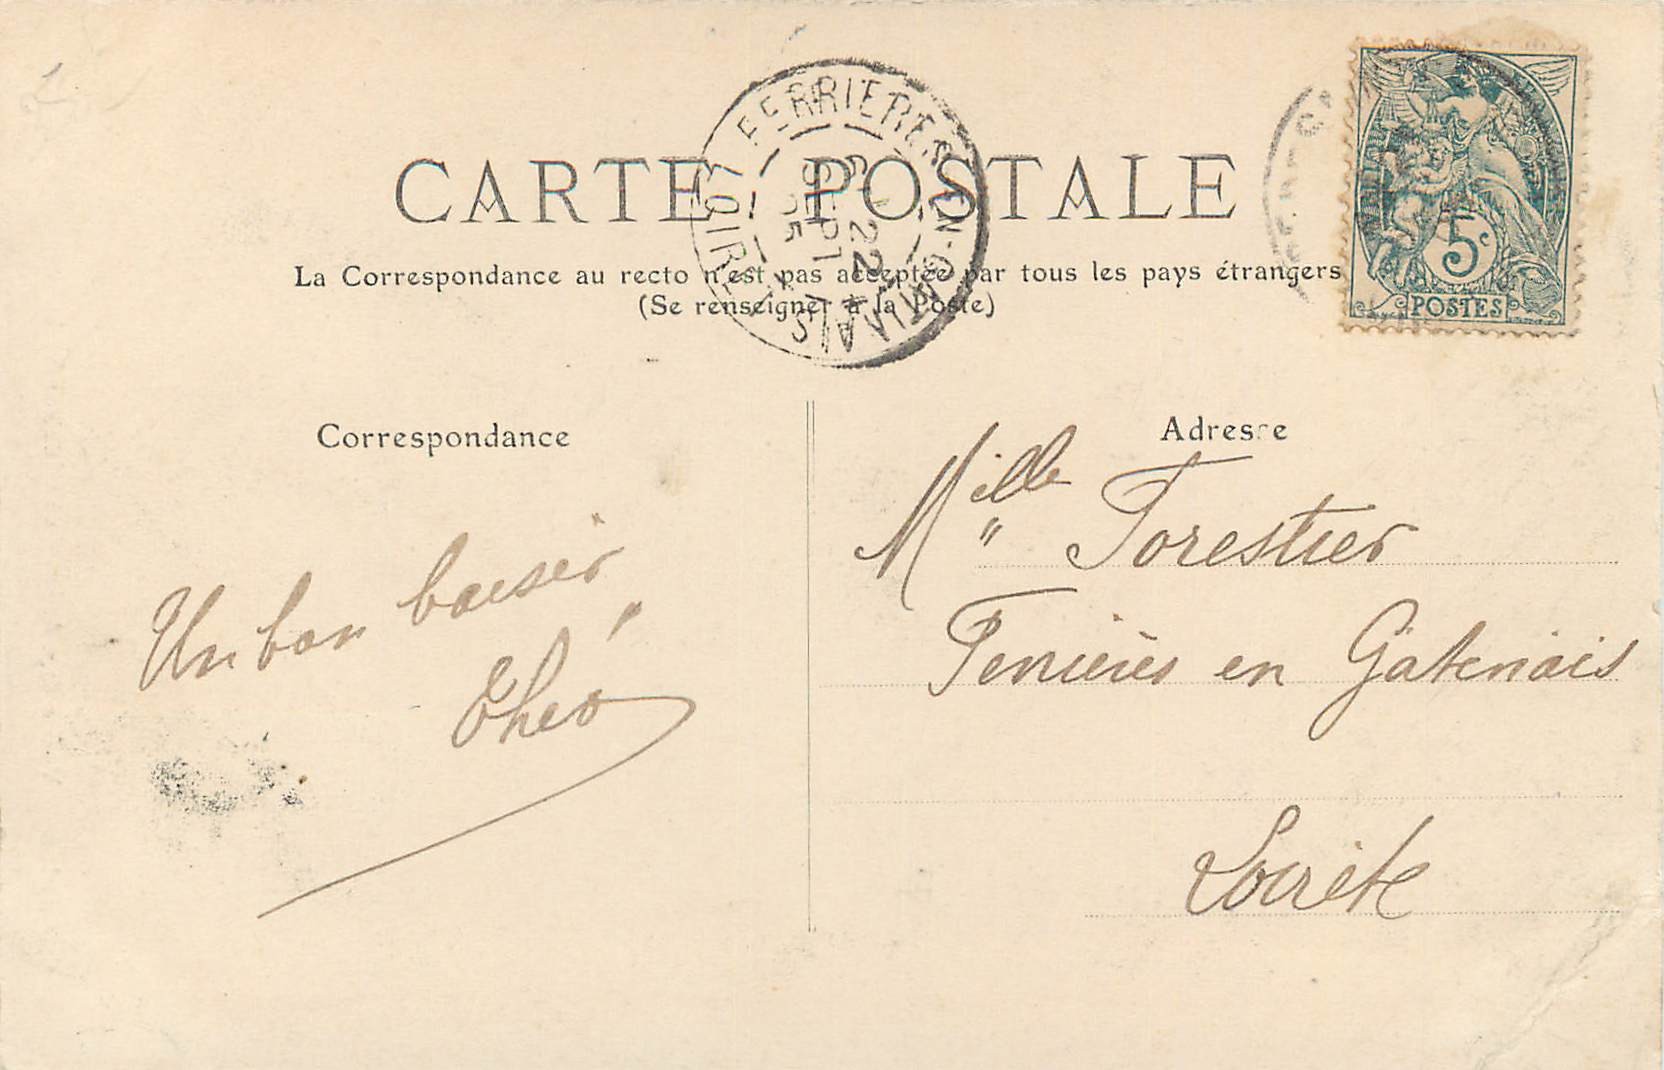 CARTE POSTALE
La Correspondance au recto n'est pas acceptée par tous les pays étrangers
(Se renseigner à la Poste)
FERRIERES-EN-GATINAIS
LOIRET
6
22
SEPT
05
5c
POSTES
Correspondance
Un bon baiser
Théo
Adresse
Mille Forestier
Ferrières en Gatenais
Loirete